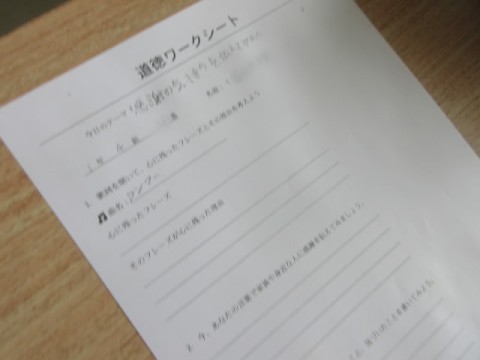 道徳ワークシート
今日のテーマ「感謝の気持ちを伝えてみよう
年 組 番 名前:
1. 歌詞を聞いて、心に残ったフレーズとその理由を考えよう
🎵曲名:
心に残ったフレーズ
そのフレーズが心に残った理由
2. 今、あなたの言葉で家族や身近な人に感謝を伝えてみましょう。